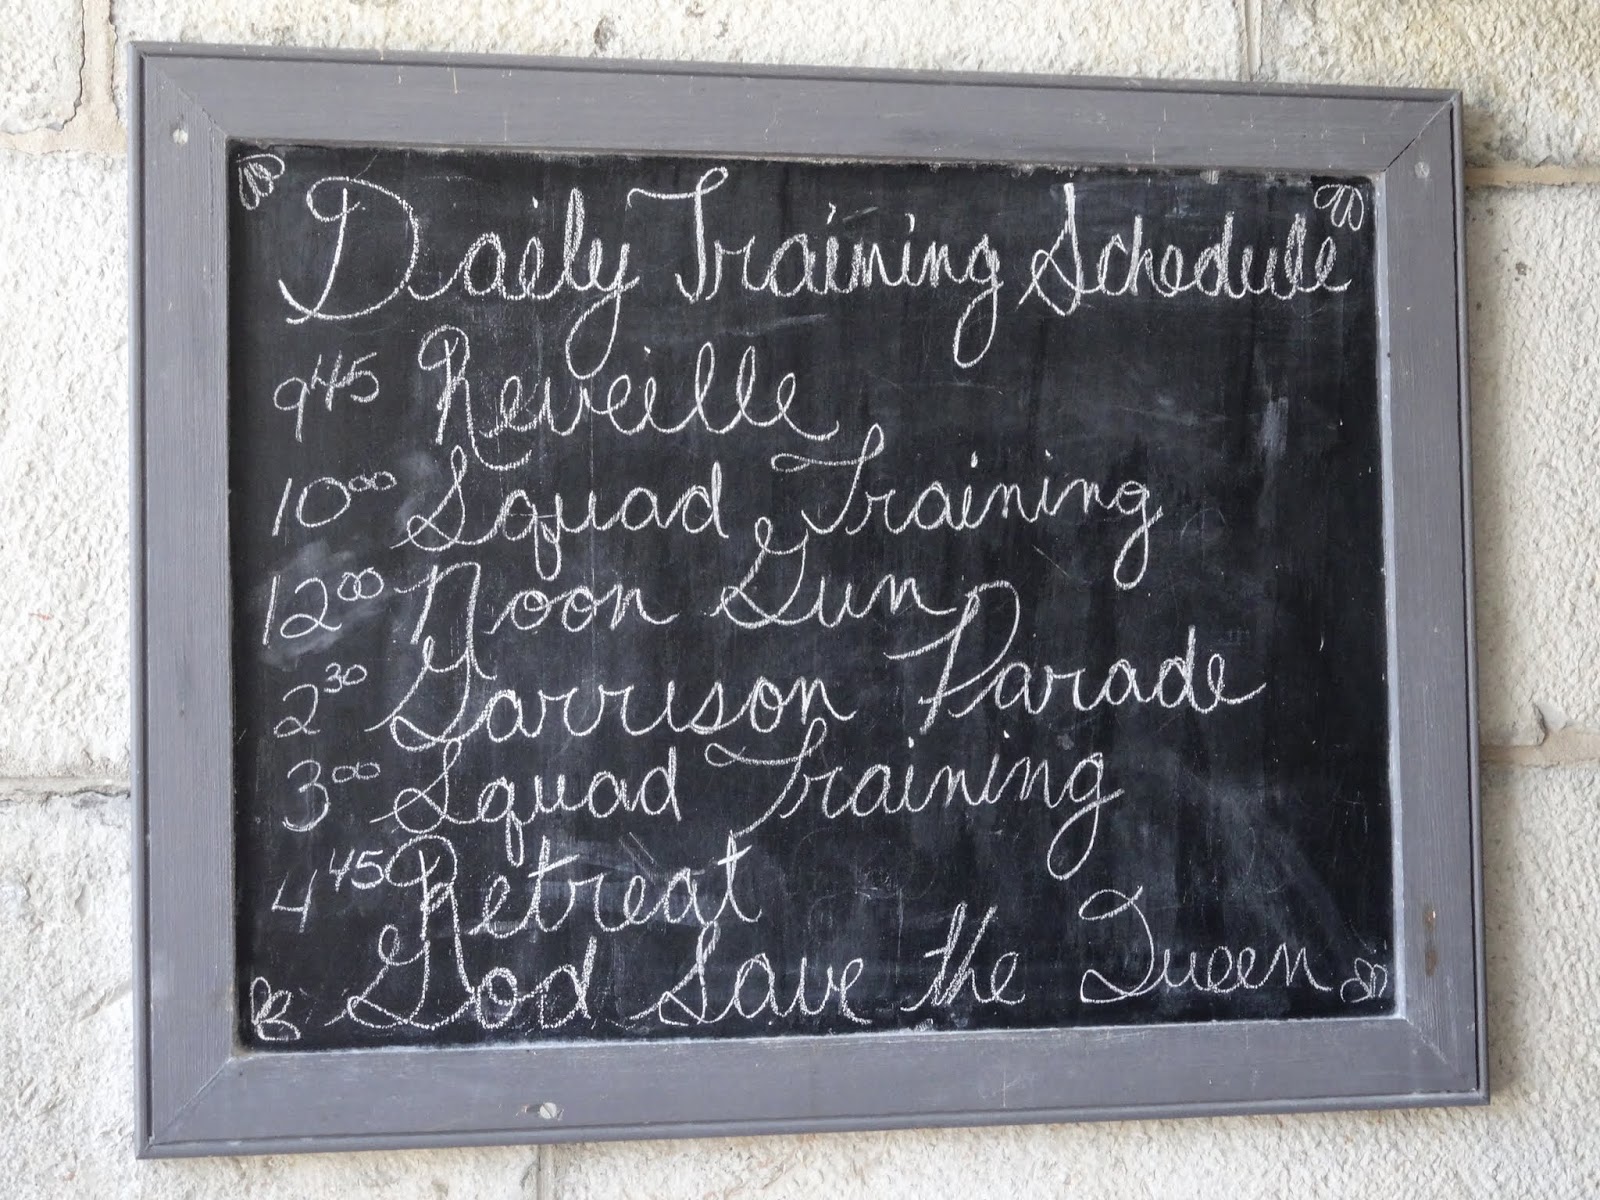 Daily Training Schedule
9 45 Reveille
10 00 Squad Training
12 00 Noon Gun
2 30 Garrison Parade
3 00 Squad Training
4 45 Retreat
God Save the Queen